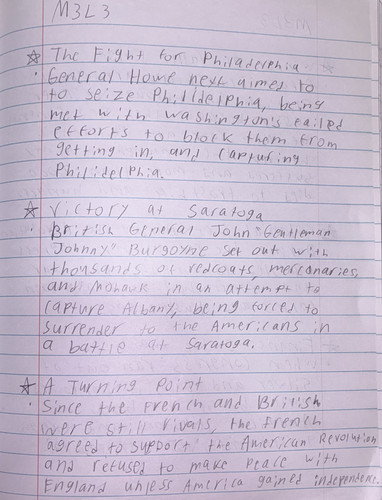 M3L3
☆ The Fight for Philadelphia
· General Howe next aimes to
to seize Philldelphia, being
met with Washington's failed
efforts to block them from
getting in, and capturing
Philidelphia.
☆ Victory at Saratoga
· British General John "Gentleman
Johnny" Burgoyne set out with
thousands of redcoats, mercanaries,
and Mohawk in an attempt to
capture Albany, being forced to
surrender to the Americans in
a battle at Saratoga.
☆ A Turning Point
· Since the French and British
were still rivals, the French
agreed to support the American Revolution
and refused to make peace with
England unless America gained independence.